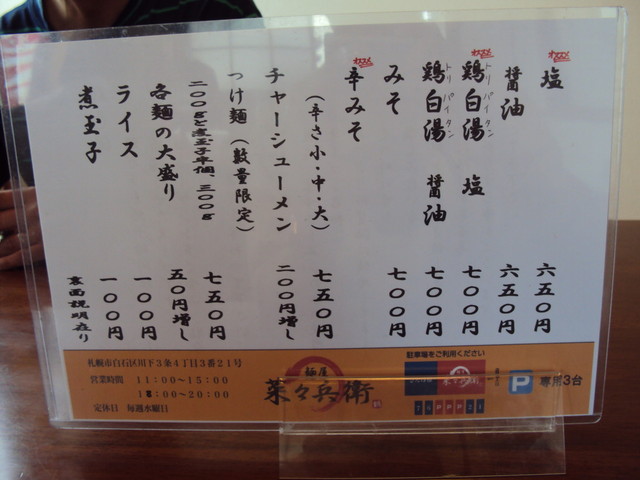 塩 六五〇円
醤油 六五〇円
鶏白湯 塩 七〇〇円
トリパイタン
鶏白湯 醤油 七〇〇円
トリパイタン
みそ 七〇〇円
辛みそ 七五〇円
(辛さ小・中・大)
チャーシューメン 二〇〇円増し
つけ麺(数量限定) 七五〇円
二〇〇gと煮玉子半個、三〇〇g
各麺の大盛り 五〇円増し
ライス 一〇〇円
煮玉子 一〇〇円
裏面説明在り
札幌市白石区川下3条4丁目3番21号
営業時間 11:00~15:00
18:00~20:00
定休日 毎週水曜日
麺屋
菜々兵衛
駐車場をご利用ください
菜々兵衛
P 専用3台